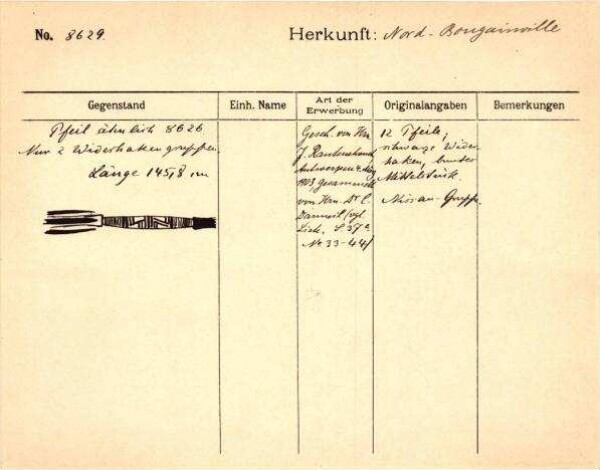 No. 8629.
Herkunft: Nord-Bougainville
Gegenstand
Einh. Name
Art der Erwerbung
Originalangaben
Bemerkungen
Pfeil ähnlich 8626
Nur 2 Widerhakengruppen.
Länge 145,8 cm
Gesch. von Hrn
J.
Antwerpen
1903, gesammelt
von Hrn. Dr C.
(vgl.
S. 37a
No 33-44)
12 Pfeile,
schwarze Wider-
haken, bunter
Mittelstück.
Nissan-Gruppe.